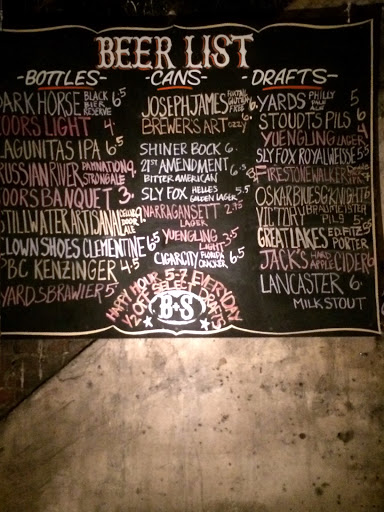 BEER LIST
-BOTTLES-
DARK HORSE BLACK BIER RESERVE 6.5
COORS LIGHT 4.
LAGUNITAS IPA 6.5
RUSSIAN RIVER DAMNATION STRONG ALE 9.
COORS BANQUET 3.
STILLWATER ARTISANAL CELLAR DOOR ALE
CLOWN SHOES CLEMENTINE 6.5
PBC KENZINGER 4.5
YARDS BRAWLER 5.
-CANS-
JOSEPH JAMES FOXTAIL GLUTEN FREE 6.
BREWER'S ART OZZY 6.
SHINER BOCK 6.
21ST AMENDMENT BITTER AMERICAN 6.5
SLY FOX HELLES GOLDEN LAGER 5.5
NARRAGANSETT LAGER 2.75
YUENGLING LIGHT 3.5
CIGAR CITY FLORIDA CRACKER 6.5
-DRAFTS-
YARDS PHILLY PALE ALE 5
STOUDTS PILS 6
YUENGLING LAGER
SLY FOX ROYAL WEISSE 5.5
FIRESTONE WALKER
OSKAR BLUES G'KNIGHT
VICTORY BRAUMEISTER PILS
GREAT LAKES ED FITZ PORTER
JACK'S HARD APPLE CIDER
LANCASTER 6.
MILK STOUT
HAPPY HOUR 5-7 EVERYDAY
1/2 OFF SELECT DRAFTS
B+S